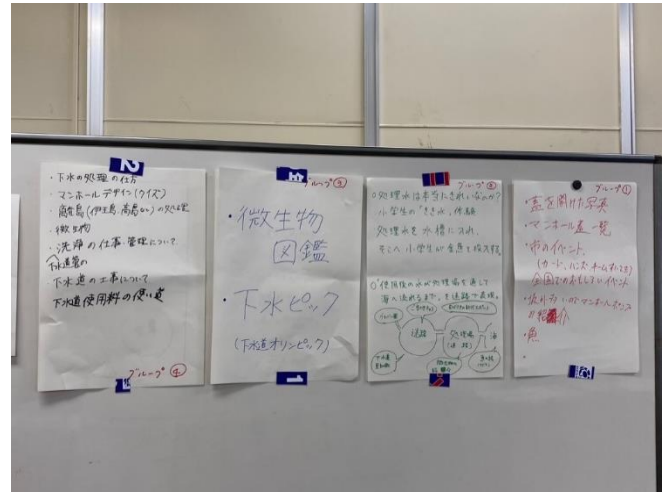 ・下水の処理の仕方
・マンホールデザイン(クイズ)
・離島(伊王島、高島など)の処理
・微生物
・洗浄の仕事・管理について
下水道管の
・下水道の工事について
下水道使用料の使い道
グループ④
グループ③
・微生物
図鑑
・下水ピック
(下水道オリンピック)
グループ②
○処理水は本当にきれいなのか?
小学生の"きき水"体験
処理水を水槽に入れ、
そこへ小学生が金魚を投入する。
○使用後の水が処理場を通して
海へ流れるまで、を迷路で表現。
迷路
処理場
(迷路)
海
グループ①
・蓋を開けた写実
・マンホール蓋一覧
・市のイベント
全国でのおもしろいイベント
・魚